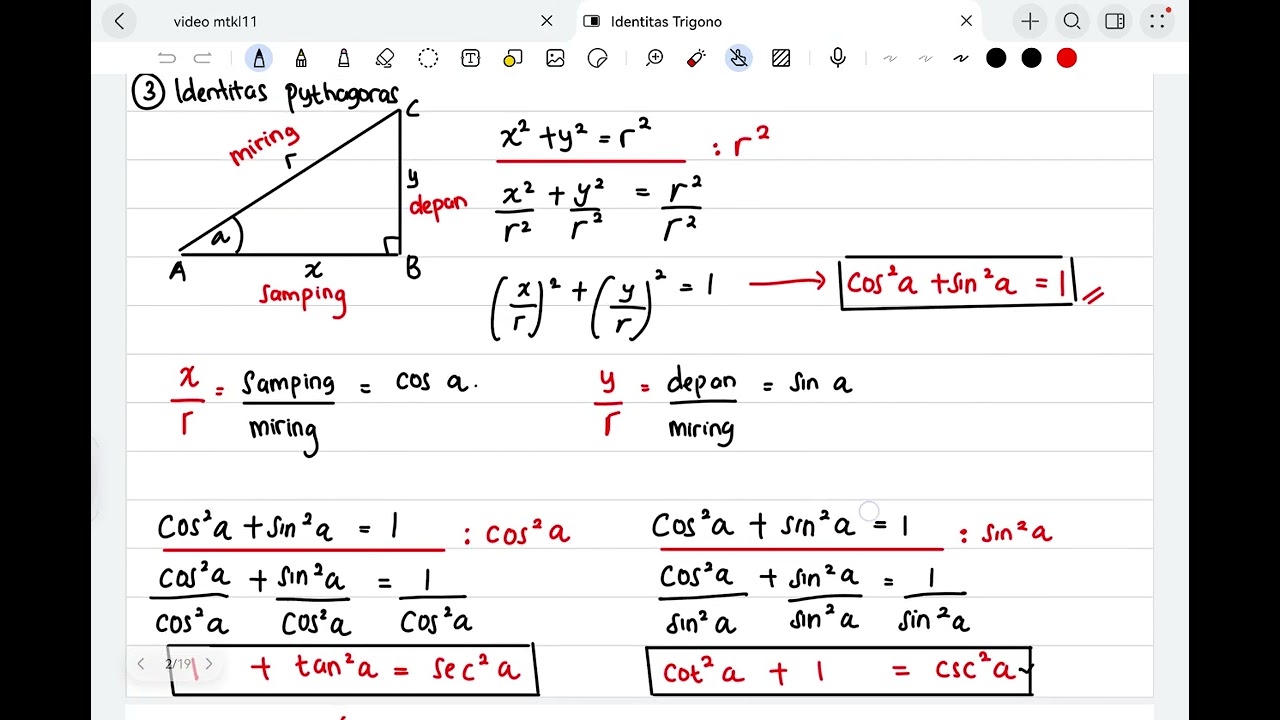 video mtkl11
Identitas Trigono
③ Identitas pythagoras
C
miring
r
y
depan
a
A
x
B
samping
x² + y² = r² : r²
x²/r² + y²/r² = r²/r²
(x/r)² + (y/r)² = 1 → cos²a + sin²a = 1
x/r = samping/miring = cos a.
y/r = depan/miring = sin a
cos²a + sin²a = 1 : cos²a
cos²a/cos²a + sin²a/cos²a = 1/cos²a
1 + tan²a = sec²a
cos²a + sin²a = 1 : sin²a
cos²a/sin²a + sin²a/sin²a = 1/sin²a
cot²a + 1 = csc²a
2/19